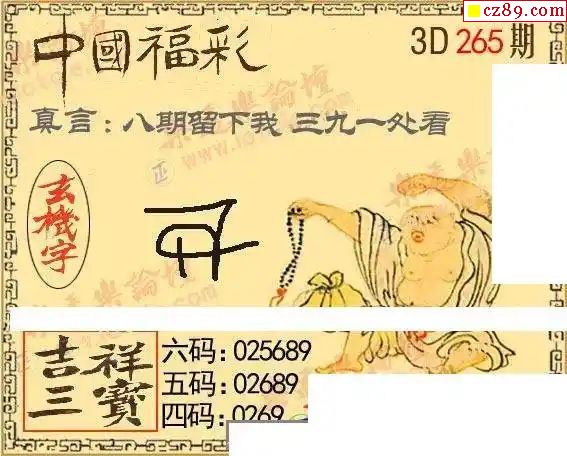 cz89.com
中國福彩
3D 265 期
真言：八期留下我 三九一处看
玄機字
吉祥三寶
六码：025689
五码：02689
四码：0269